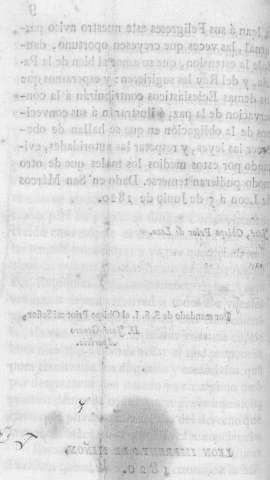 lean á sus Feligreses este nuestro aviso pas-
toral, las veces que creyesen oportuno, dan-
dole la extension, que su amor al bien de la Pa-
tria, y del Rey les sugiriese: y esperamos que
los demas Eclesiásticos contribuirán á la con-
servacion de la paz, é ilustrarán á sus conveci-
nos de la obligacion en que se hallan de obe-
decer las leyes, y respetar las autoridades, evi-
tando por estos medios los males que de otro
modo pudieran temerse. Dado en San Márcos
de Leon á 5 de Junio de 1820.
Obispo Prior de Leon.
Por mandado de S. S. I. el Obispo Prior mi Señor,
D. José
Secretario.
LEON: IMPRENTA DE MIÑON,
1820.